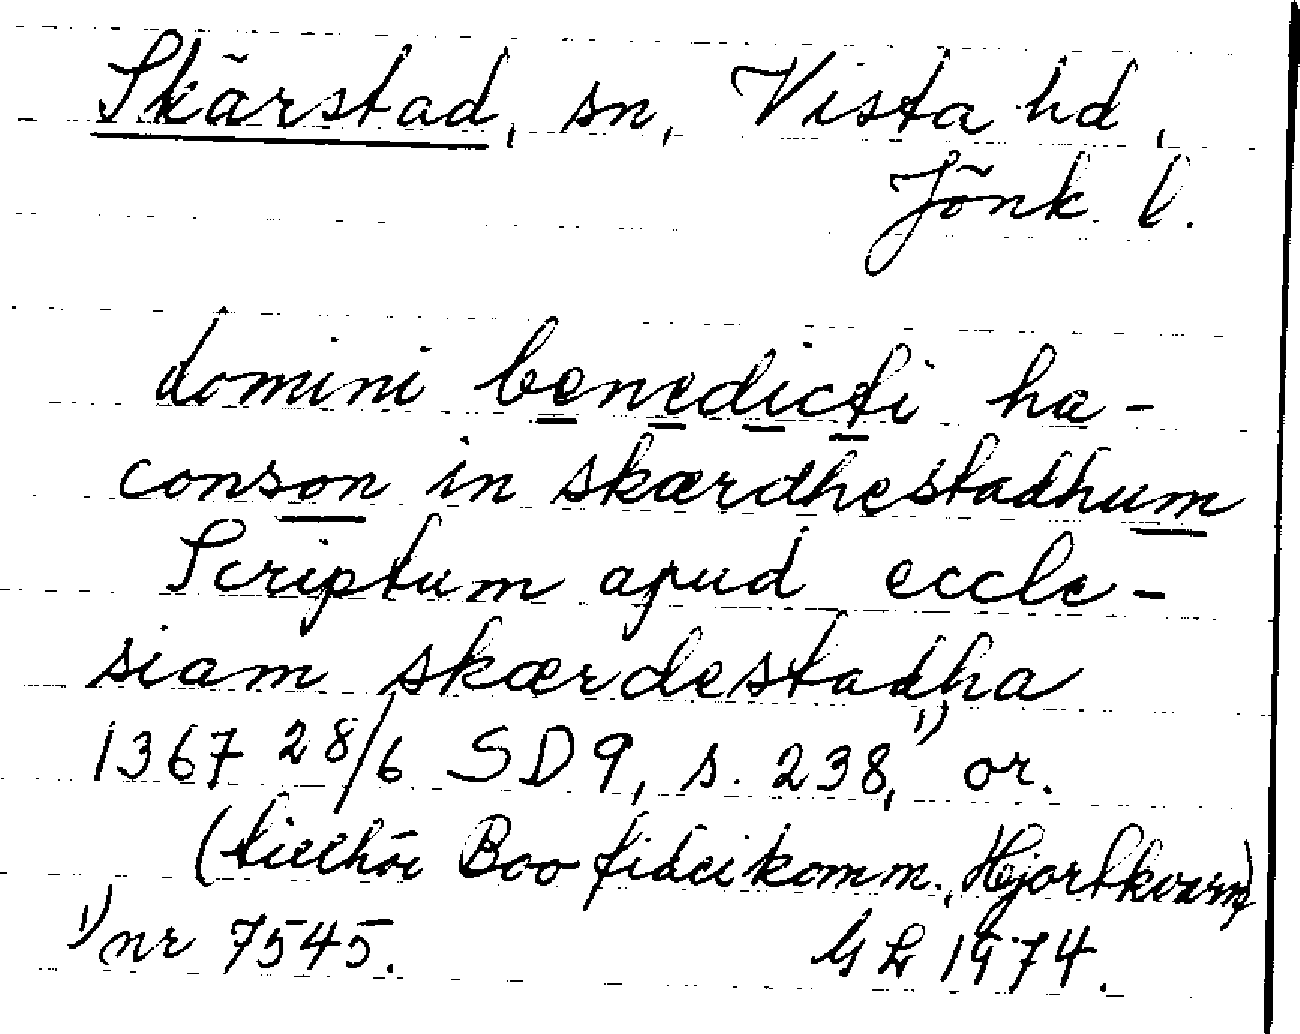 Skärstad, sn, Vista hd,
Jönk. l.
domini benedicti ha-
conson in skærdhestadhum
Scriptum apud eccle-
siam skærdestadha
1367 28/6 SD 9, s. 238,¹⁾ or.
(tillhör Boo fideikomm., Hjortkvarn)
¹⁾ nr 7545. GL 1974.